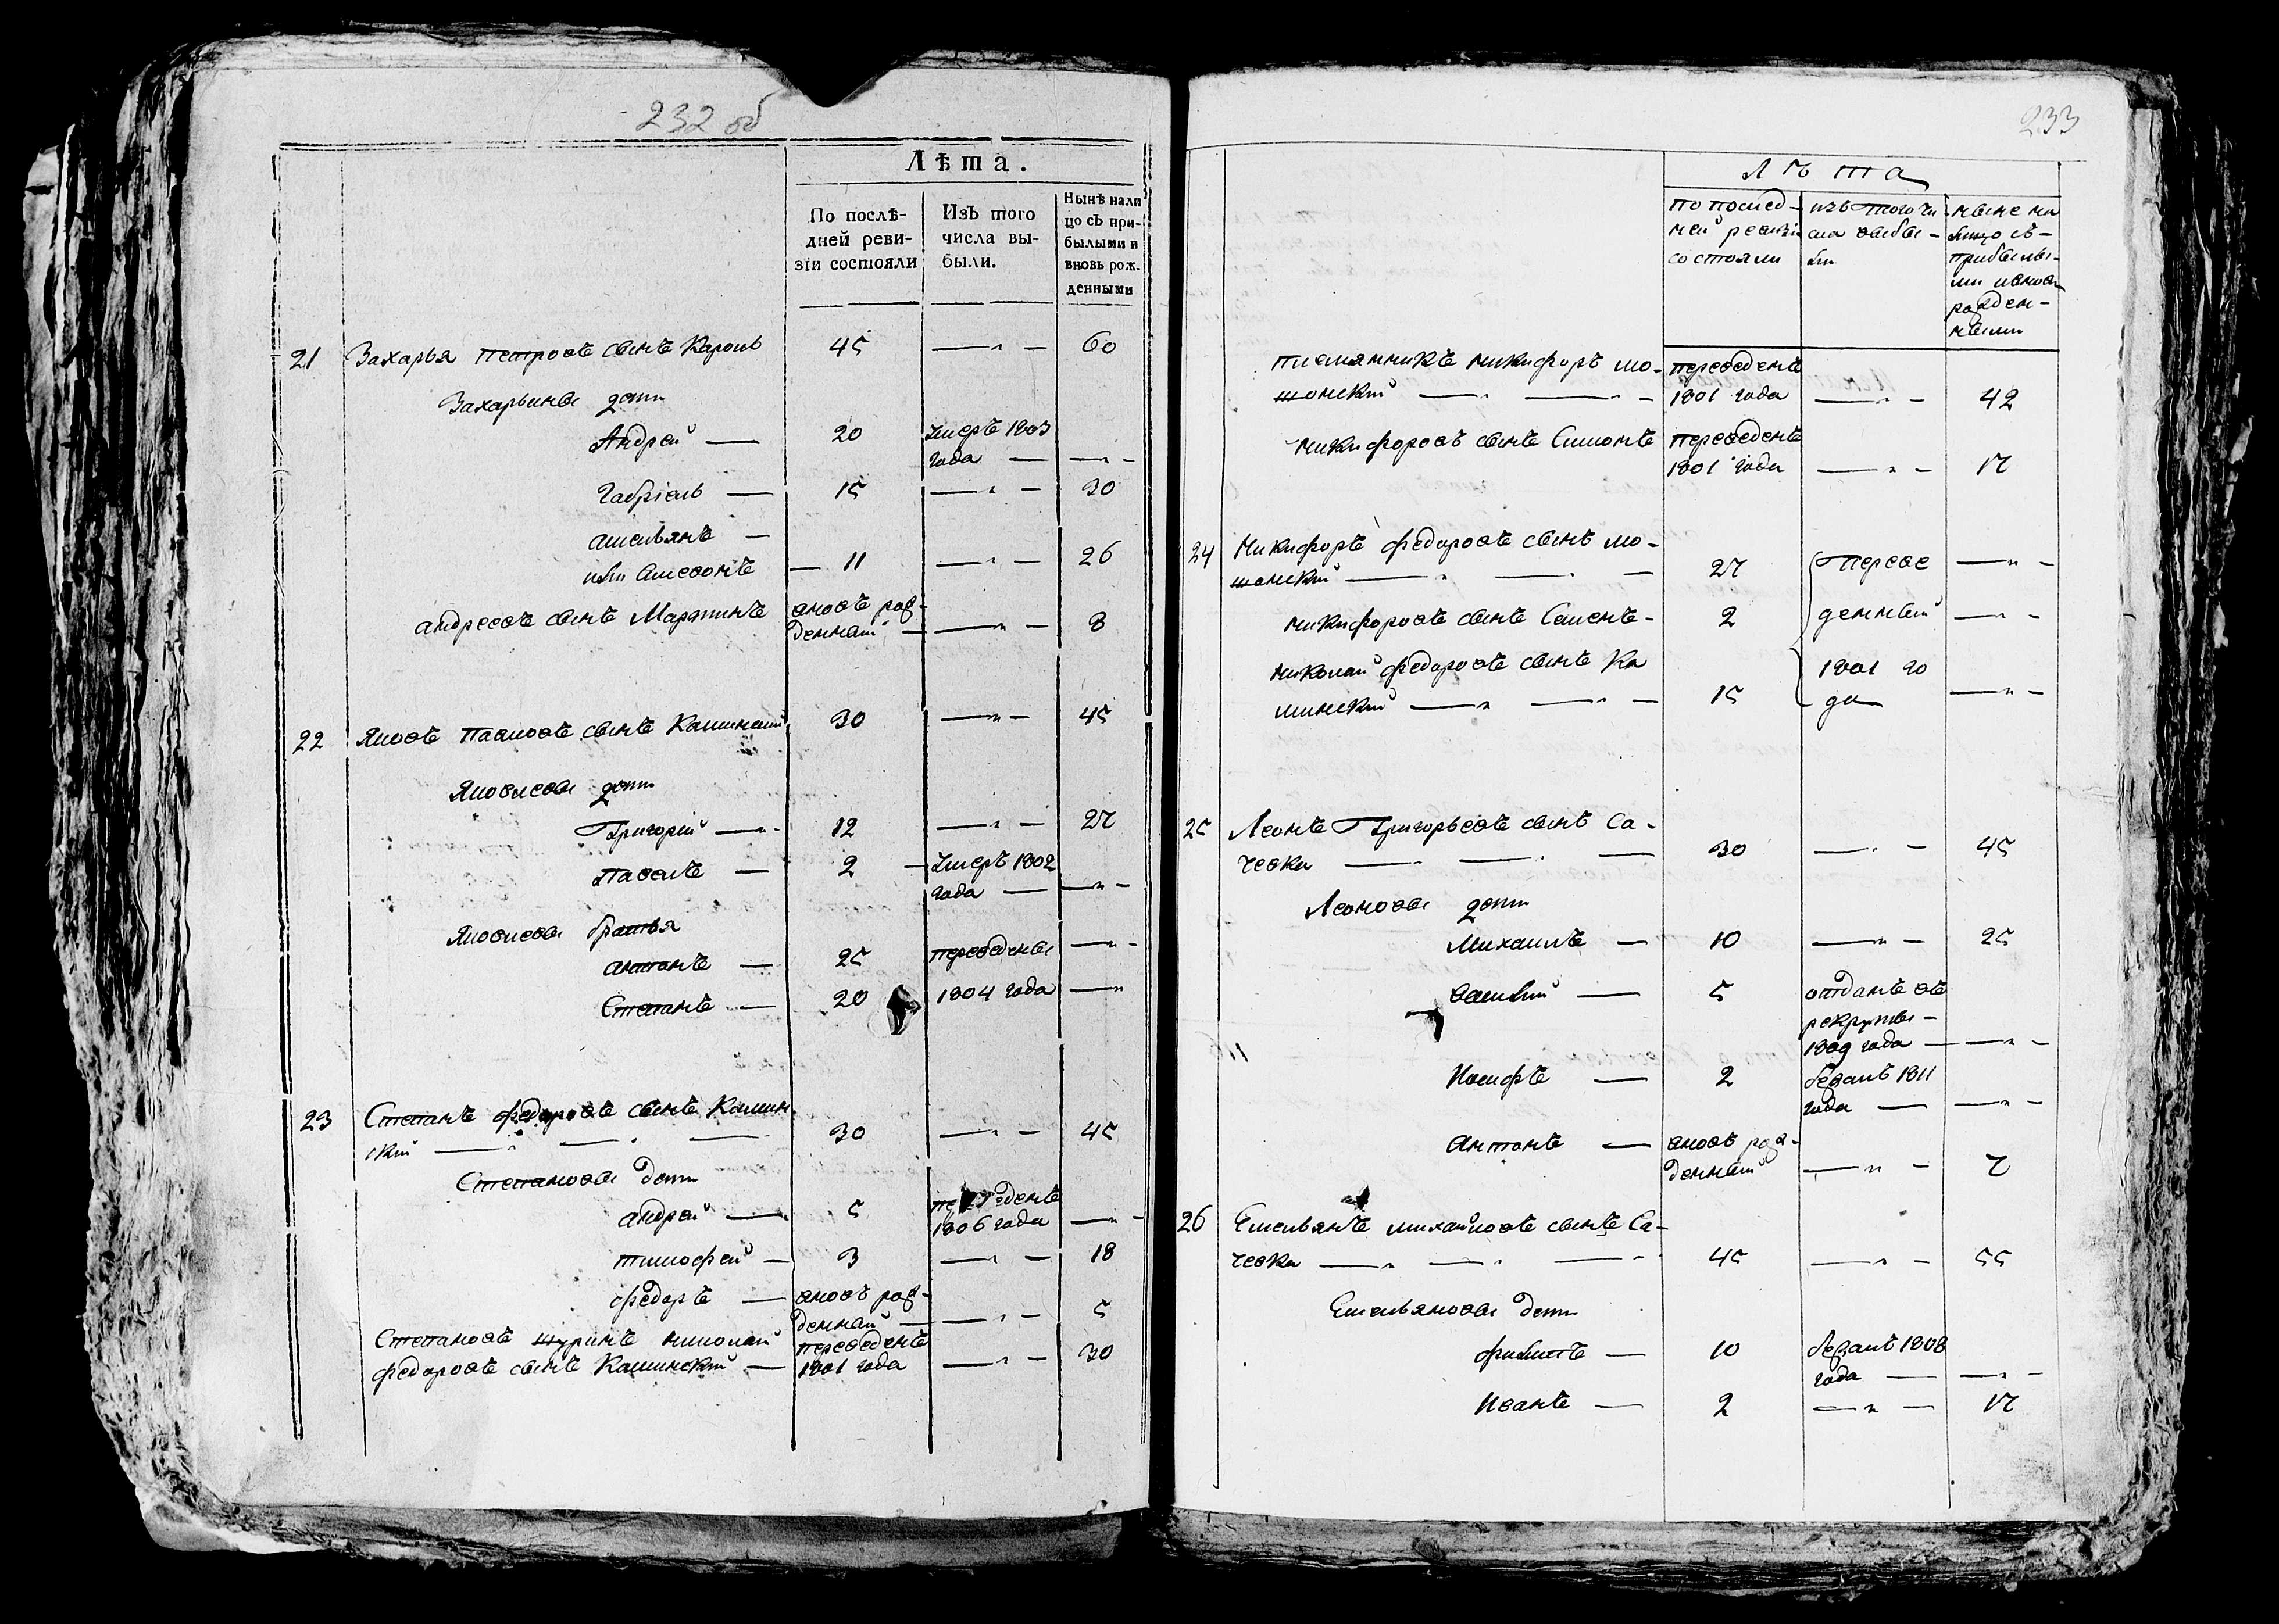 232 об
Лѣта.
По послѣ-
дней реви-
зіи состояли
Изъ того
числа вы-
были.
Нынѣ нали
цо съ при-
былыми и
вновь рож-
денными
21 Захарья Петровъ сынъ Кароль 45 — „ — 60
Захарьины дети
Андрей — 20 умеръ 1803
года — — „ —
Габріель — 15 — „ — 30
Амельянъ —
или Амевонъ — 11 — „ — 26
Андреевъ сынъ Мартинъ вновь рож-
денный — — „ — 8
22 Яковъ Павловъ сынъ Каминский 30 — „ — 45
Яковлевы дети
Григорий — „ - 12 — „ — 27
Павелъ — 2 — умеръ 1802
года — — „ —
Яковлевы братья
Антонъ — 25 переведены — „ -
Степанъ — 20 1804 года — „
23 Степанъ Федоровъ сынъ Камин
ский — „ — „ — 30 — „ — 45
Степановы дети
Андрей — 5 переведенъ
1806 года — „ -
Тимофей — 3 — „ — 18
Федоръ — вновь рож-
денный — — „ — 5
Степановъ шуринъ Николай переведенъ
Федоровъ сынъ Каминский — 1801 года — „ — 30
233
Лѣта
по послед-
ней ревизіи
состояли
изъ того чи
сла выбы-
ли
ныне на
лицо съ-
прибылы-
ми и вновь
рожден-
ными
племянникъ Никифоръ Мо- переведенъ
шонский — „ — „ — 1801 года — „ — 42
Никифоровъ сынъ Симонъ переведенъ
1801 года — „ — 17
24 Никифоръ Федоровъ сынъ Мо-
шонский — „ — „ — 27 переве — „ —
Никифоровъ сынъ Семенъ - 2 денный — „ —
Николай Федоровъ сынъ Ка 1801 го
минский — „ — „ — 15 да — „ —
25 Леонъ Григорьевъ сынъ Са-
чевка — „ — „ — 30 — „ — 45
Леоновы дети
Михаилъ — 10 — „ — 25
Василий — 5 отданъ въ
рекруты —
1809 года — — „ —
Иосифъ — 2 бежалъ 1811
года — — „ —
Антонъ — вновь рож-
денный — „ — 7
26 Емельянъ Михайловъ сынъ Са-
чевка — „ — „ — 45 — „ — 55
Емельяновы дети
Филипъ — 10 бежалъ 1808
года — — „ —
Иванъ — 2 — „ — 17